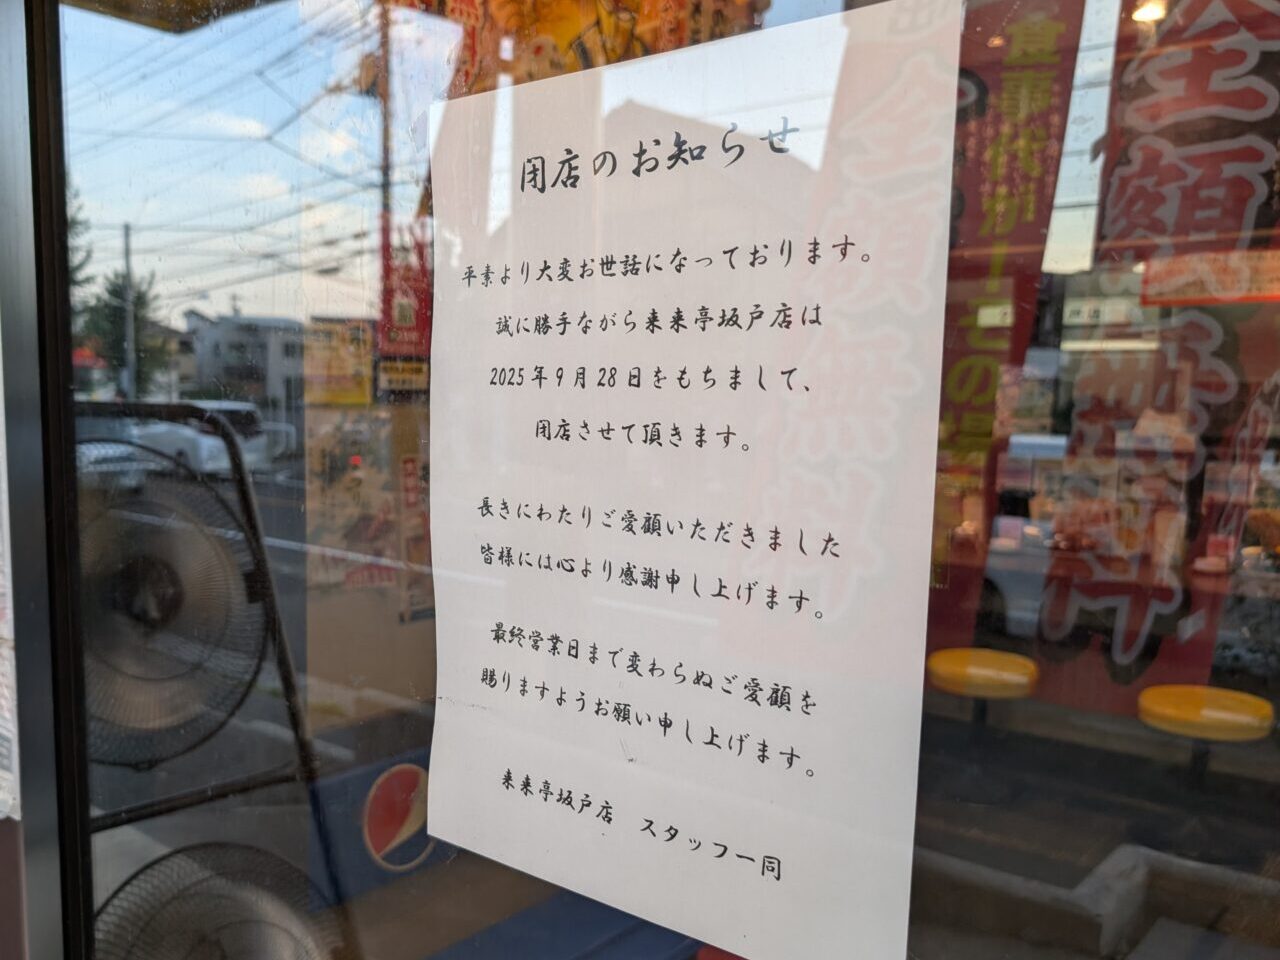 閉店のお知らせ
平素より大変お世話になっております。
誠に勝手ながら来来亭坂戸店は
2025年9月28日をもちまして、
閉店させて頂きます。
長きにわたりご愛顧いただきました
皆様には心より感謝申し上げます。
最終営業日まで変わらぬご愛顧を
賜りますようお願い申し上げます。
来来亭坂戸店 スタッフ一同
食事代が
全額無料